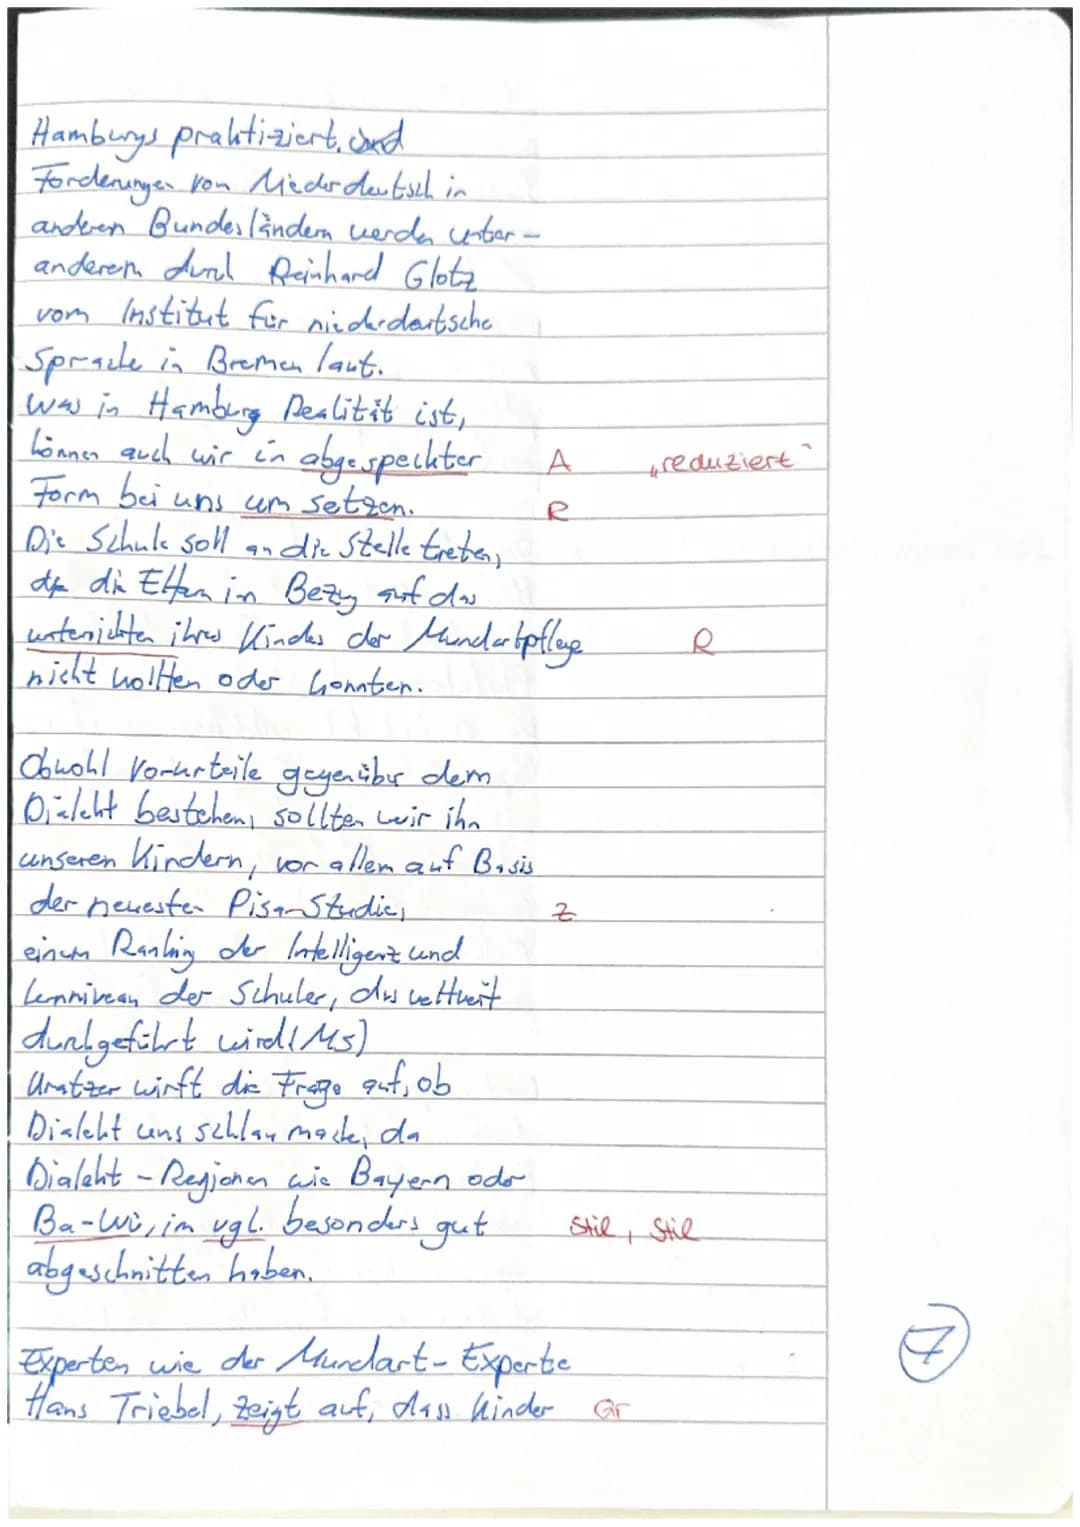 Hamburgs praktiziert, und
Forderungen von Niederdeutsch in
anderen Bundesländern werden unter-
anderem durch Reinhard Glotz
vom Institut für niederdeutsche
Sprache in Bremen laut.
Was in Hamburg Realität ist,
können auch wir in abgespeckter A „reduziert"
Form bei uns um setzen. R
Die Schule soll an die Stelle treten,
die Eltern in Bezug auf das
unterichten ihres Kindes der Mundartpflege R
nicht wollten oder konnten.
Obwohl Vorurteile gegenüber dem
Dialekt bestehen, sollten wir ihn
unseren Kindern, vor allem auf Basis
der neuesten Pisa-Studie, Z
einem Ranking der Intelligenz und
Lernniveau der Schüler, das weltweit
durchgeführt wird (M5)
Kratzer wirft die Frage auf, ob
Dialekt uns schlau mache, da
Dialekt-Regionen wie Bayern oder
Ba-Wü, im vgl. besonders gut Stil, Stil
abgeschnitten haben.
7
Experten wie der Mundart-Experte
Hans Triebel, zeigt auf, dass Kinder Gr